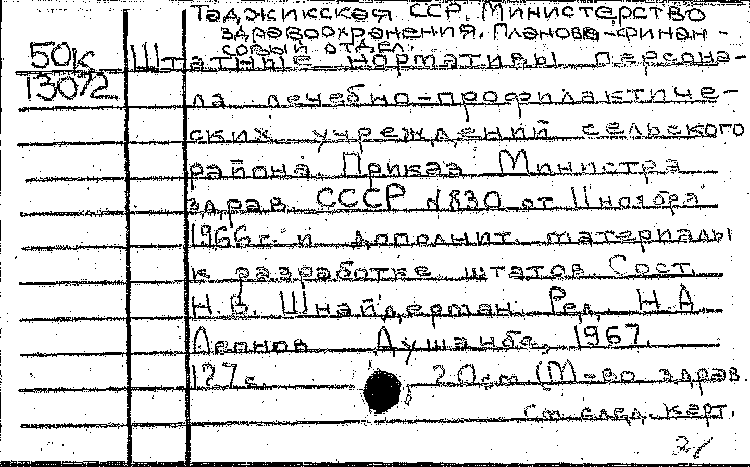 Таджикская ССР. Министерство
здравоохранения. Планово-финан-
совый отдел.
50к Штатные нормативы персона-
130/2 ла лечебно-профилактиче-
ских учреждений сельского
района. Приказ Министра
здрав. СССР №830 от 11 ноября
1966 г. и дополнит. материалы
к разработке штатов. Сост.
Н.В. Шнайдерман. Ред. Н.А.
Леонов Душанбе, 1967.
127 с. 20см (М-во здрав.
См. след. карт.